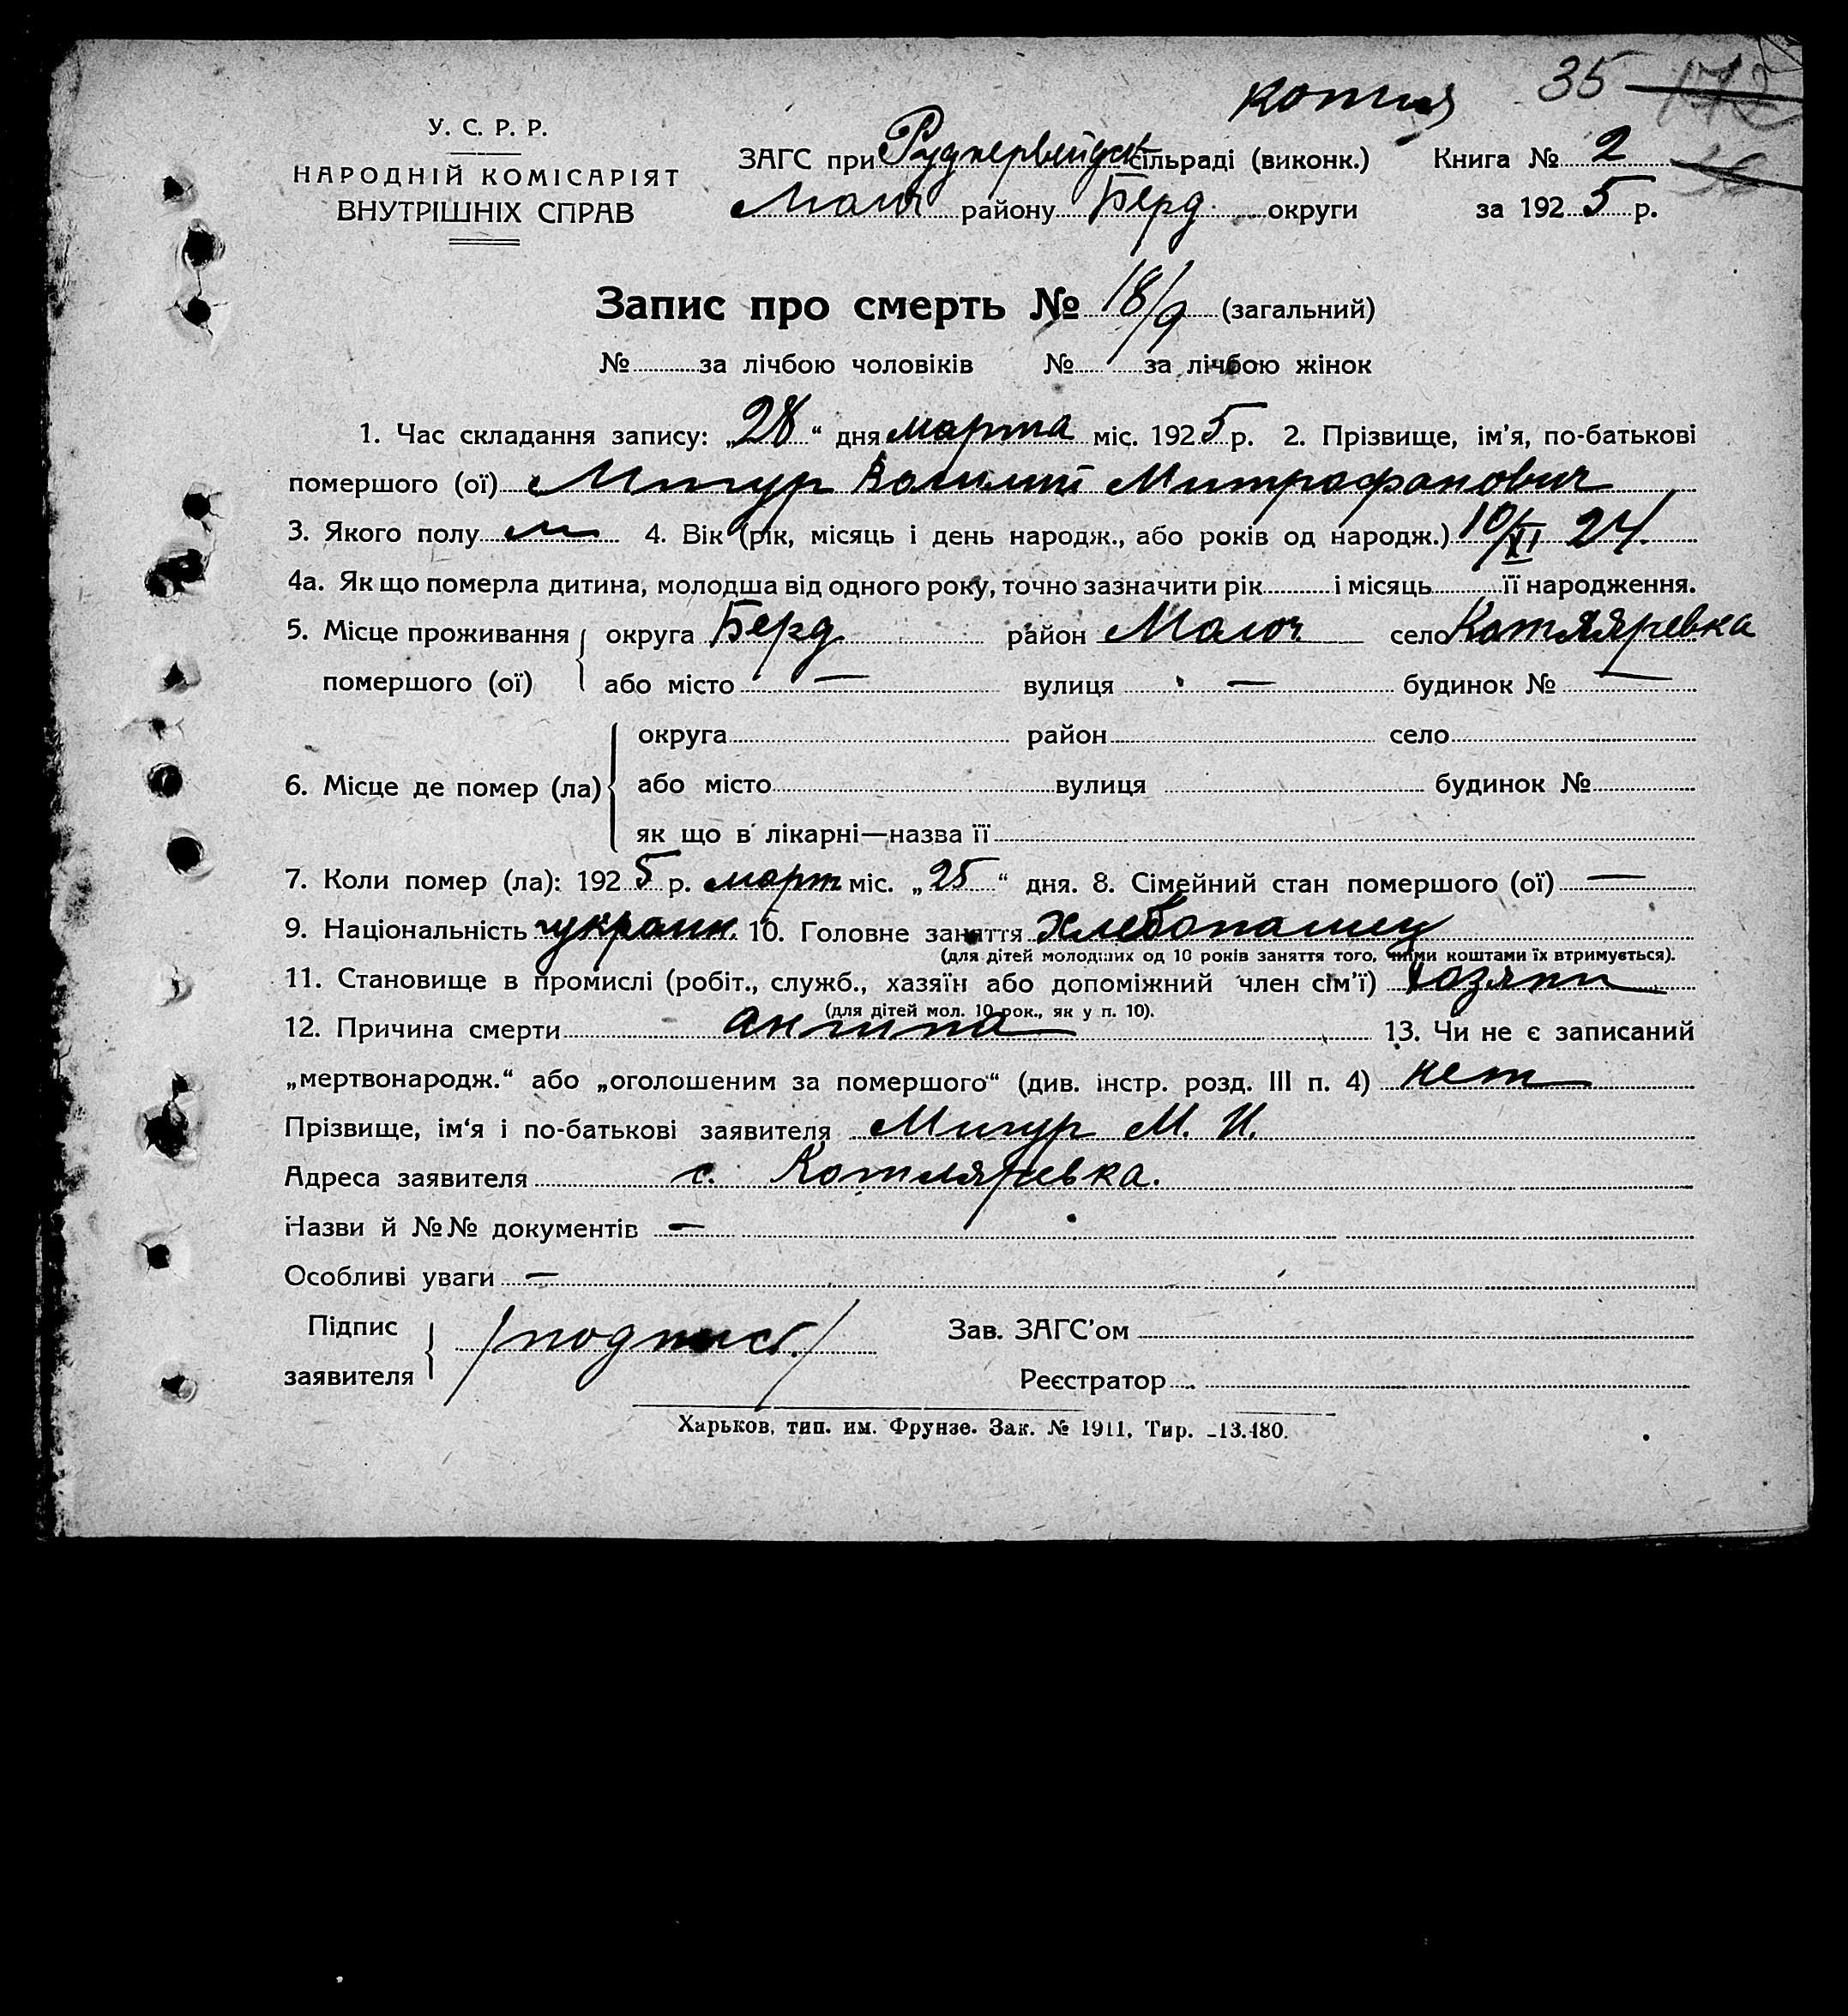 копия 35 172
У. С. Р. Р.
НАРОДНІЙ КОМІСАРІЯТ
ВНУТРІШНІХ СПРАВ
ЗАГС при сільраді (виконк.) Книга № 2 36
Малоч району Берд. округи за 1925 р.
Запис про смерть № 18/9 (загальний)
№ за лічбою чоловіків № за лічбою жінок
1. Час складання запису: „28“ дня марта міс. 1925 р. 2. Прізвище, ім'я, по-батькові
помершого (ої) Мигур Василий Митрафанович
3. Якого полу м 4. Вік (рік, місяць і день народж., або років од народж.) 10/XI 24.
4а. Як що померла дитина, молодша від одного року, точно зазначити рік і місяць її народження.
5. Місце проживання округа Берд. район Малоч село Котляревка
помершого (ої) або місто — вулиця — будинок № —
округа район село
6. Місце де помер (ла) або місто вулиця будинок №
як що в лікарні—назва її
7. Коли помер (ла): 1925 р. март міс. „25“ дня. 8. Сімейний стан помершого (ої) —
9. Національність украин. 10. Головне заняття Хлебопашец
(для дітей молодших од 10 років заняття того, чиїми коштами їх втримується).
11. Становище в промислі (робіт., служб., хазяїн або допоміжний член сім'ї) хозяин
(для дітей мол. 10 рок., як у п. 10).
12. Причина смерти ангина 13. Чи не є записаний
„мертвонародж.“ або „оголошеним за помершого“ (див. інстр. розд. III п. 4) нет
Прізвище, ім'я і по-батькові заявителя Мигур М. И.
Адреса заявителя с. Котляревка.
Назви й №№ документів —
Особливі уваги —
Підпис /подпись/ Зав. ЗАГС'ом
заявителя Реєстратор
Харьков, тип. им. Фрунзе. Зак. № 1911, Тир. 13.480.